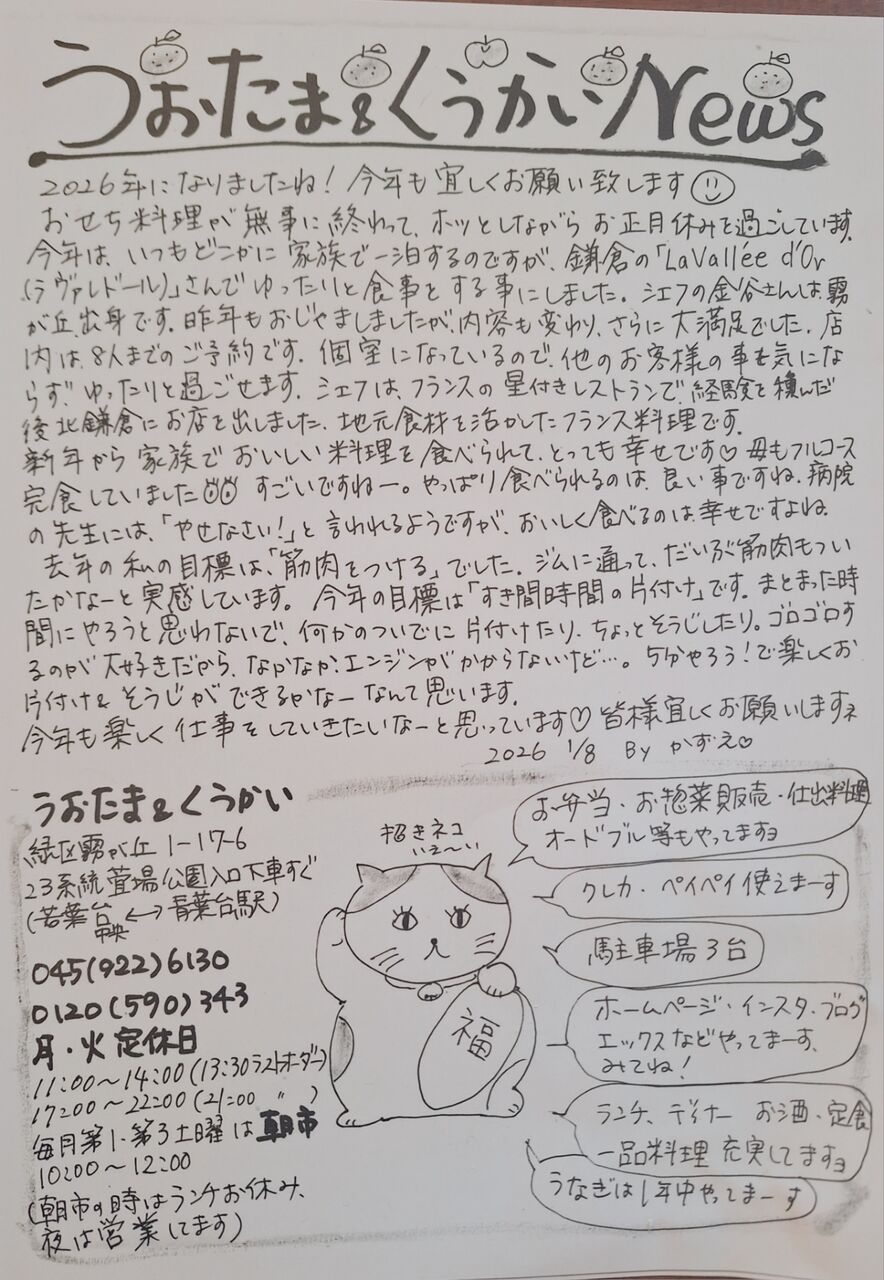 うおたま&くうかいNews
2026年になりましたね！今年も宜しくお願い致します
おせち料理が無事に終わって、ホッとしながらお正月休みを過ごしています。
今年は、いつもどこかに家族で一泊するのですが、鎌倉の「LaVallée d'Or
(ラヴァレドール)」さんでゆったりと食事をする事にしました。シェフの金谷さんは、霧
が丘出身です。昨年もおじゃましましたが、内容も変わり、さらに大満足でした。店
内は、8人までのご予約です。個室になっているので、他のお客様の事を気にな
らず、ゆったりと過ごせます。シェフは、フランスの星付きレストランで、経験を積んだ
後北鎌倉にお店を出しました。地元食材を活かしたフランス料理です。
新年から家族でおいしい料理を食べられて、とっても幸せです♡母もフルコース
完食していました すごいですねー。やっぱり食べられるのは、良い事ですね。病院
の先生には、「やせなさい！」と言われるようですが、おいしく食べるのは、幸せですよね
去年の私の目標は、「筋肉をつける」でした。ジムに通って、だいぶ筋肉もつい
たかなーと実感しています。今年の目標は「すき間時間の片付け」です。まとまった時
間にやろうと思わないで、何かのついでに片付けたり、ちょっとそうじしたり。ゴロゴロす
るのが大好きだから、なかなかエンジンがかからないけど…。5分やろう！で楽しくお
片付け&そうじができるかなーなんて思います。
今年も楽しく仕事をしていきたいなーと思っています♡皆様宜しくお願いしますネ
2026 1/8 By かずえ♡
うおたま&くうかい
緑区霧が丘1-17-6
23系統萱場公園入口下車すぐ
(若葉台中央⟷青葉台駅)
045(922)6130
0120(590)343
月・火定休日
11:00～14:00(13:30ラストオーダー)
17:00～22:00(21:00 〃 )
毎月第1・第3土曜は朝市
10:00～12:00
(朝市の時はランチお休み、
夜は営業してます)
招きネコ
いぇ～い
福
お弁当・お惣菜販売・仕出料理
オードブル等もやってますヨ
クレカ・ペイペイ使えまーす
駐車場3台
ホームページ・インスタ・ブログ
エックスなどやってまーす、
みてね！
ランチ、ディナー お酒・定食
一品料理充実してますヨ
うなぎは1年中やってまーす